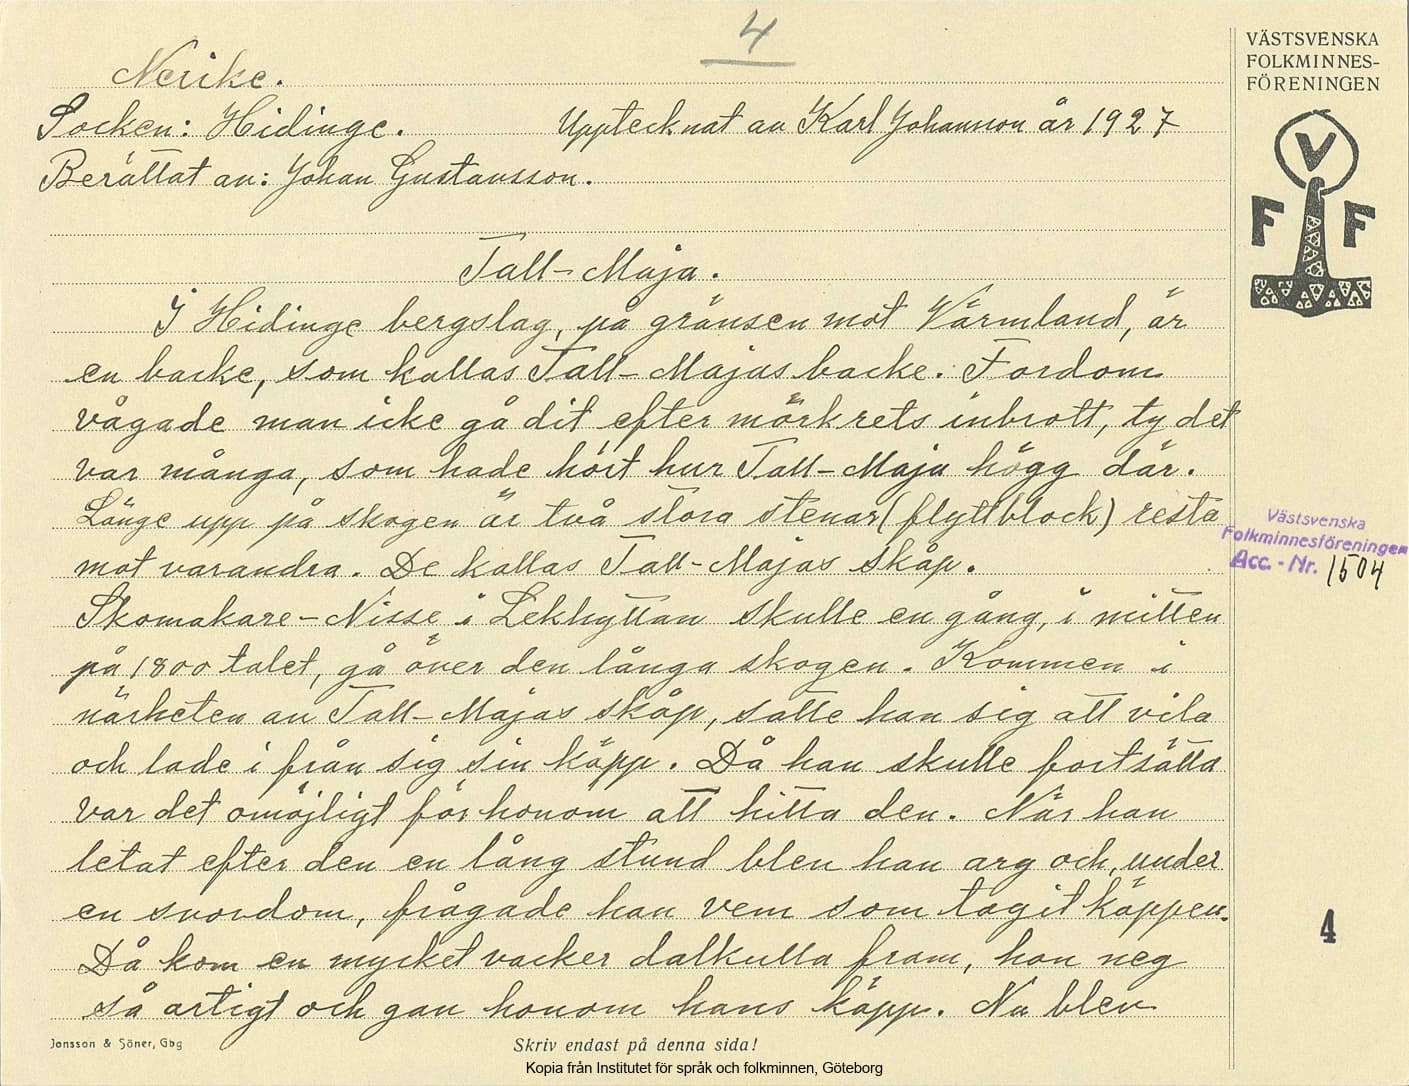 4
Nerike.
Socken: Hidinge. Upptecknat av Karl Johansson år 1927
Berättat av: Johan Gustavsson.
Tall-Maja.
I Hidinge bergslag, på gränsen mot Värmland, är
en backe, som kallas Tall-Majas backe. Fordom
vågade man icke gå dit efter mörkrets inbrott, ty det
var många, som hade hört hur Tall-Maja högg där.
Länge upp på skogen är två stora stenar (flyttblock) resta
mot varandra. De kallas Tall-Majas skåp.
Skomakare-Nisse i Lekhyttan skulle en gång, i mitten
på 1800 talet, gå över den långa skogen. Kommen i
närheten av Tall-Majas skåp, satte han sig att vila
och lade i från sig sin käpp. Då han skulle fortsätta
var det omöjligt för honom att hitta den. När han
letat efter den en lång stund blev han arg och, under
en svordom, frågade han vem som tagit käppen.
Då kom en mycket vacker dalkulla fram, hon neg
så artigt och gav honom hans käpp. Nu blev
Jonsson & Söner, Gbg
Skriv endast på denna sida!
Kopia från Institutet för språk och folkminnen, Göteborg
VÄSTSVENSKA
FOLKMINNES-
FÖRENINGEN
V
F F
Västsvenska
Folkminnesföreningen
Acc. - Nr. 1504
4